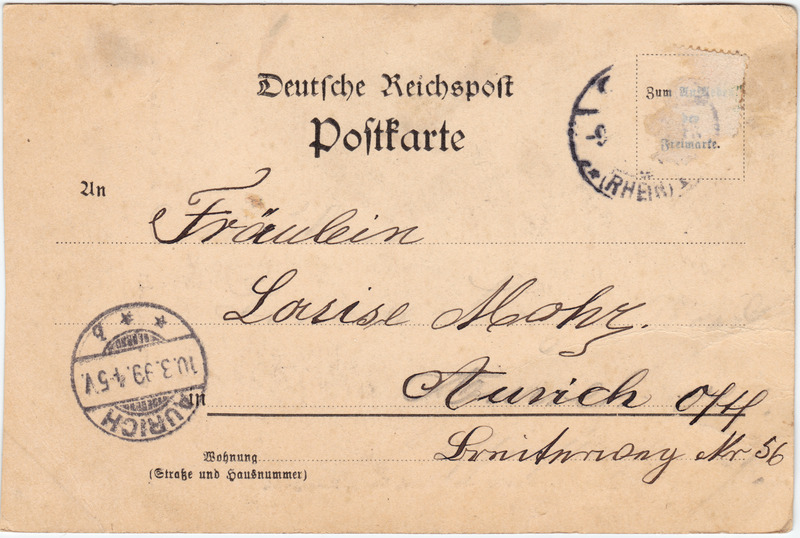 Deutsche Reichspost
Postkarte
Zum Aufkleben
der
Freimarke.
(RHEIN)
An
Fräulein
Louise Mohr.
in Aurich O/H
Breiterweg Nr 56
Wohnung
(Straße und Hausnummer)
AURICH
10.3.99.4-5V.
* * b